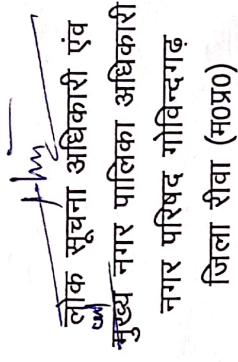 लोक सूचना अधिकारी एंव
मुख्य नगर पालिका अधिकारी
नगर परिषद गोविन्दगढ़
जिला रीवा (म0प्र0)